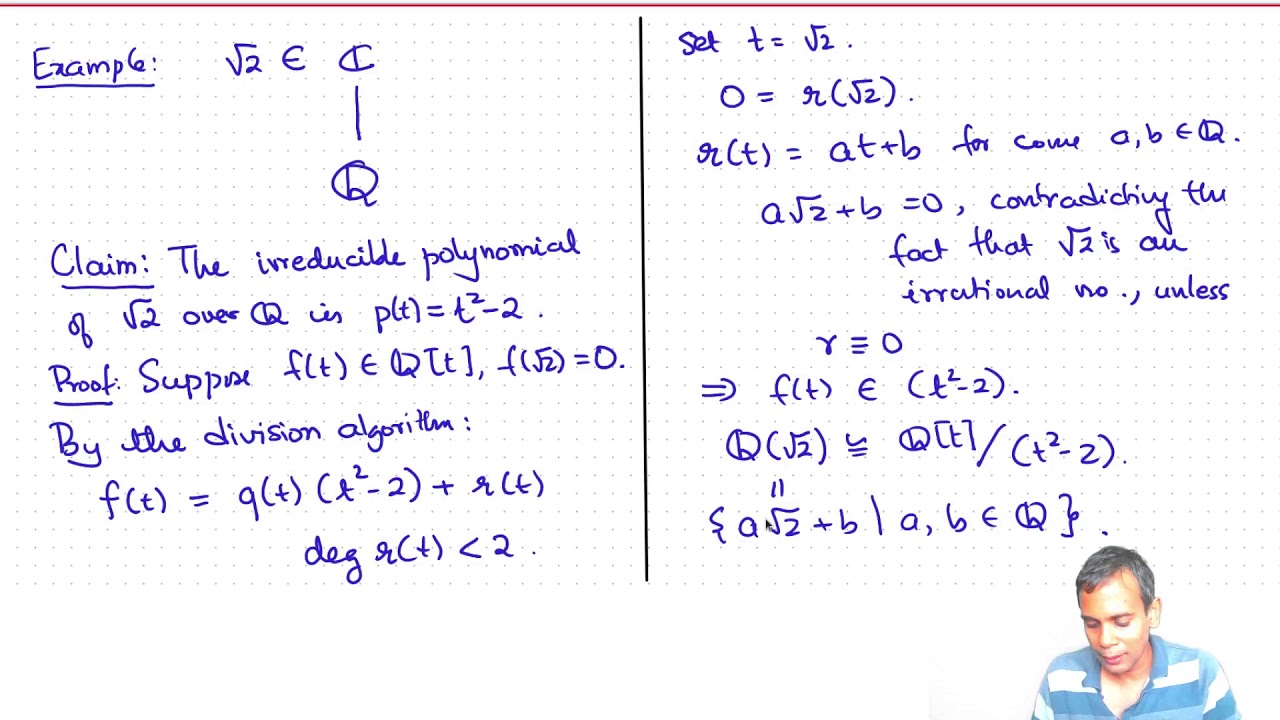 Example: √2 ∈ ℂ
|
ℚ
Claim: The irreducible polynomial
of √2 over ℚ is p(t) = t²-2.
Proof: Suppose f(t) ∈ ℚ[t], f(√2) = 0.
By the division algorithm:
f(t) = q(t) (t²-2) + r(t)
deg r(t) < 2.
Set t = √2.
0 = r(√2).
r(t) = at+b for some a, b ∈ ℚ.
a√2 + b = 0, contradicting the
fact that √2 is an
irrational no., unless
r ≡ 0
⇒ f(t) ∈ (t²-2).
ℚ(√2) ≅ ℚ[t]/(t²-2).
=
{a√2 + b | a, b ∈ ℚ}.